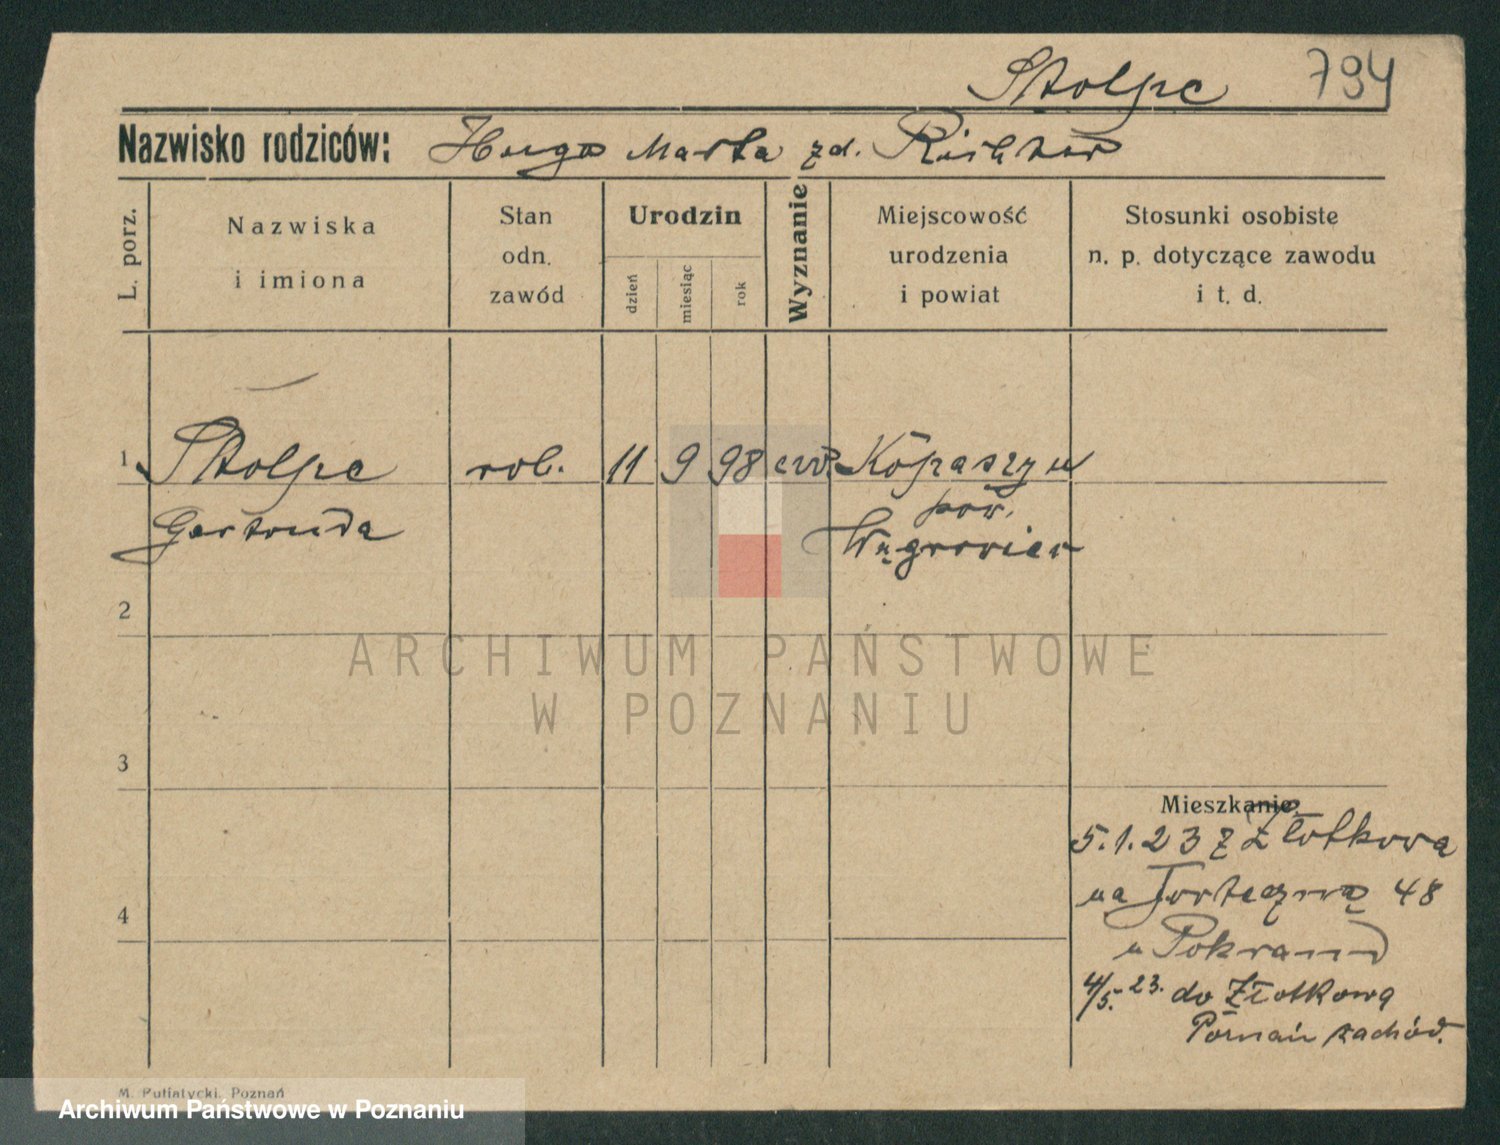 Stolpe 794
Nazwisko rodziców: Hugo Marta zd. Richter
L. porz.
Nazwiska
i imiona
Stan
odn.
zawód
Urodzin
dzień
miesiąc
rok
Wyznanie
Miejscowość
urodzenia
i powiat
Stosunki osobiste
n. p. dotyczące zawodu
i t. d.
1 Stolpe rob. 11 9 98 ew. Kopaszyn
pow.
Gertruda Wągrowiec
2
ARCHIWUM PAŃSTWOWE
W POZNANIU
3
Mieszkanie
5.1.23 z Złotkowa
na Forteczną 48
u Pokrant
4
4/5. 23. do Złotkowa
Poznań zachód.
M. Putiatycki, Poznań
Archiwum Państwowe w Poznaniu